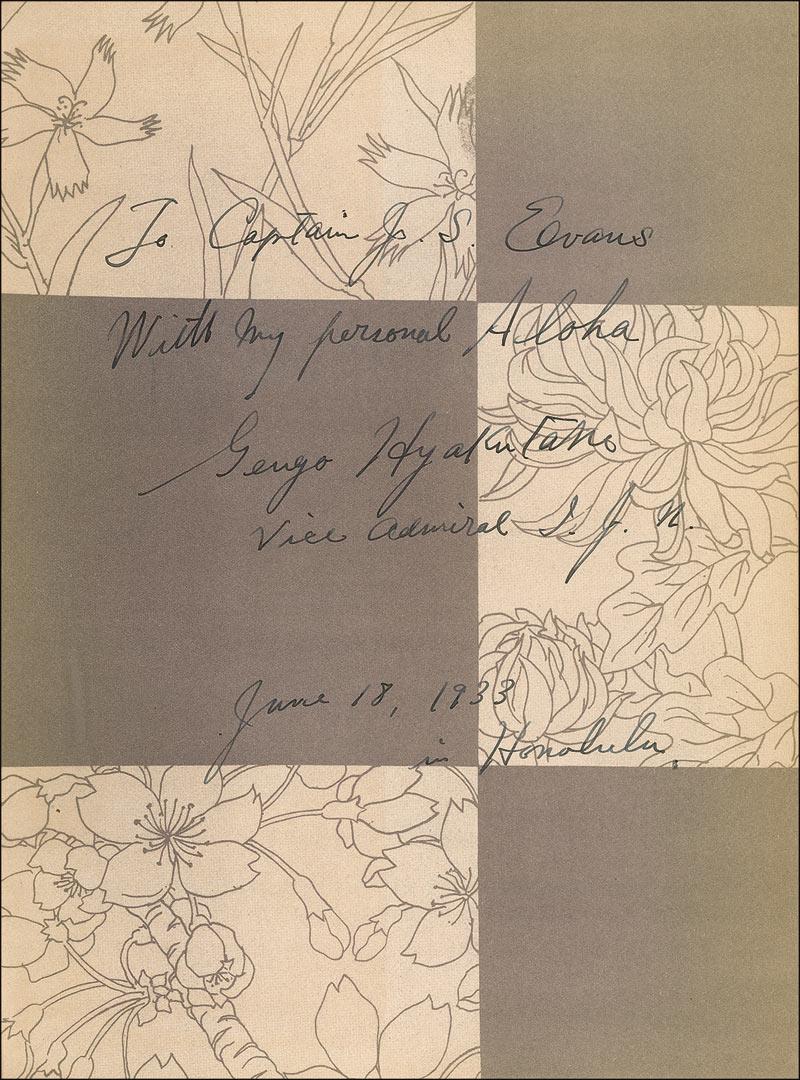 To Captain Jo. S. Evans
With my personal Aloha
Gengo Hyakutake
Vice Admiral I. J. N.
June 18, 1933
in Honolulu.